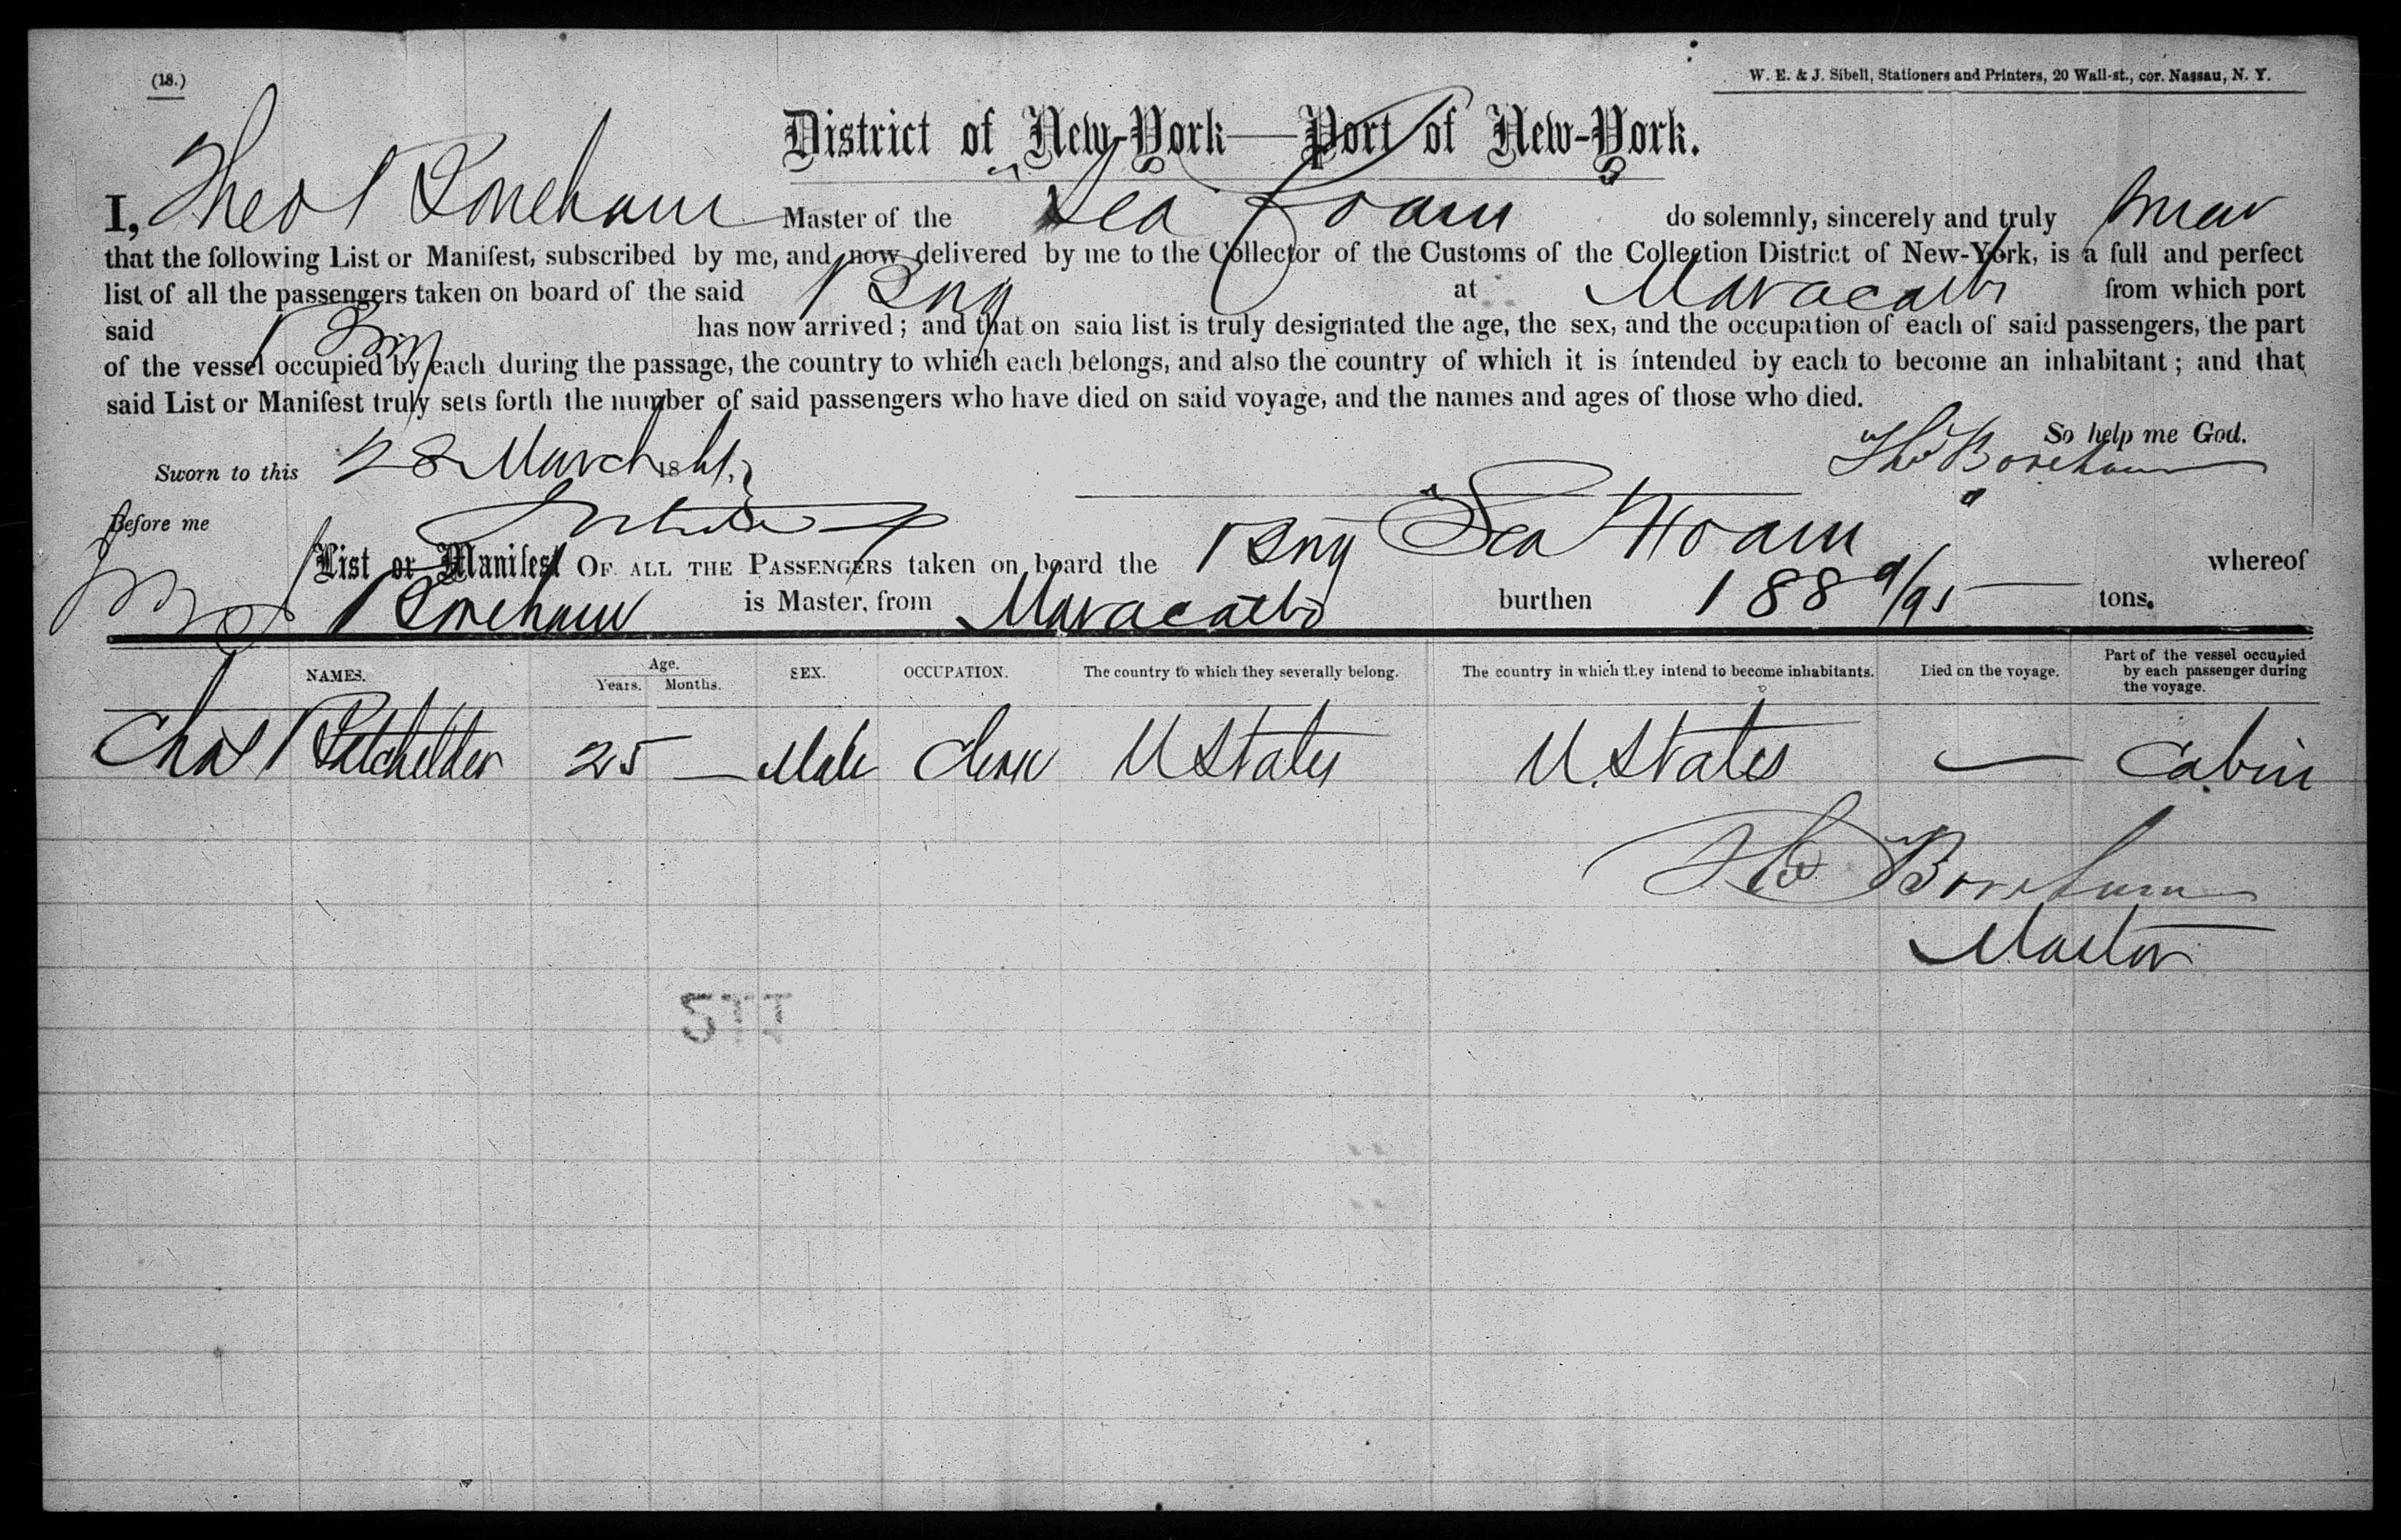 (18.)
W. E. & J. Sibell, Stationers and Printers, 20 Wall-st., cor. Nassau, N. Y.
District of New-York—Port of New-York.
I, Theo Boneham Master of the Sea Foam do solemnly, sincerely and truly swear
that the following List or Manifest, subscribed by me, and now delivered by me to the Collector of the Customs of the Collection District of New-York, is a full and perfect
list of all the passengers taken on board of the said Brig at Maracaibo from which port
said Brig has now arrived; and that on said list is truly designated the age, the sex, and the occupation of each of said passengers, the part
of the vessel occupied by each during the passage, the country to which each belongs, and also the country of which it is intended by each to become an inhabitant; and that
said List or Manifest truly sets forth the number of said passengers who have died on said voyage, and the names and ages of those who died.
So help me God.
Sworn to this 28 March 1861.
Before me
List or Manifest OF ALL THE PASSENGERS taken on board the Brig Sea Foam whereof
Boneham is Master, from Maracaibo burthen 188 9/95 tons.
NAMES. Age. Years. Months. SEX. OCCUPATION. The country to which they severally belong. The country in which they intend to become inhabitants. Died on the voyage. Part of the vessel occupied by each passenger during the voyage.
Chas Batchelder 25 — Male U States U. States — Cabin
Master